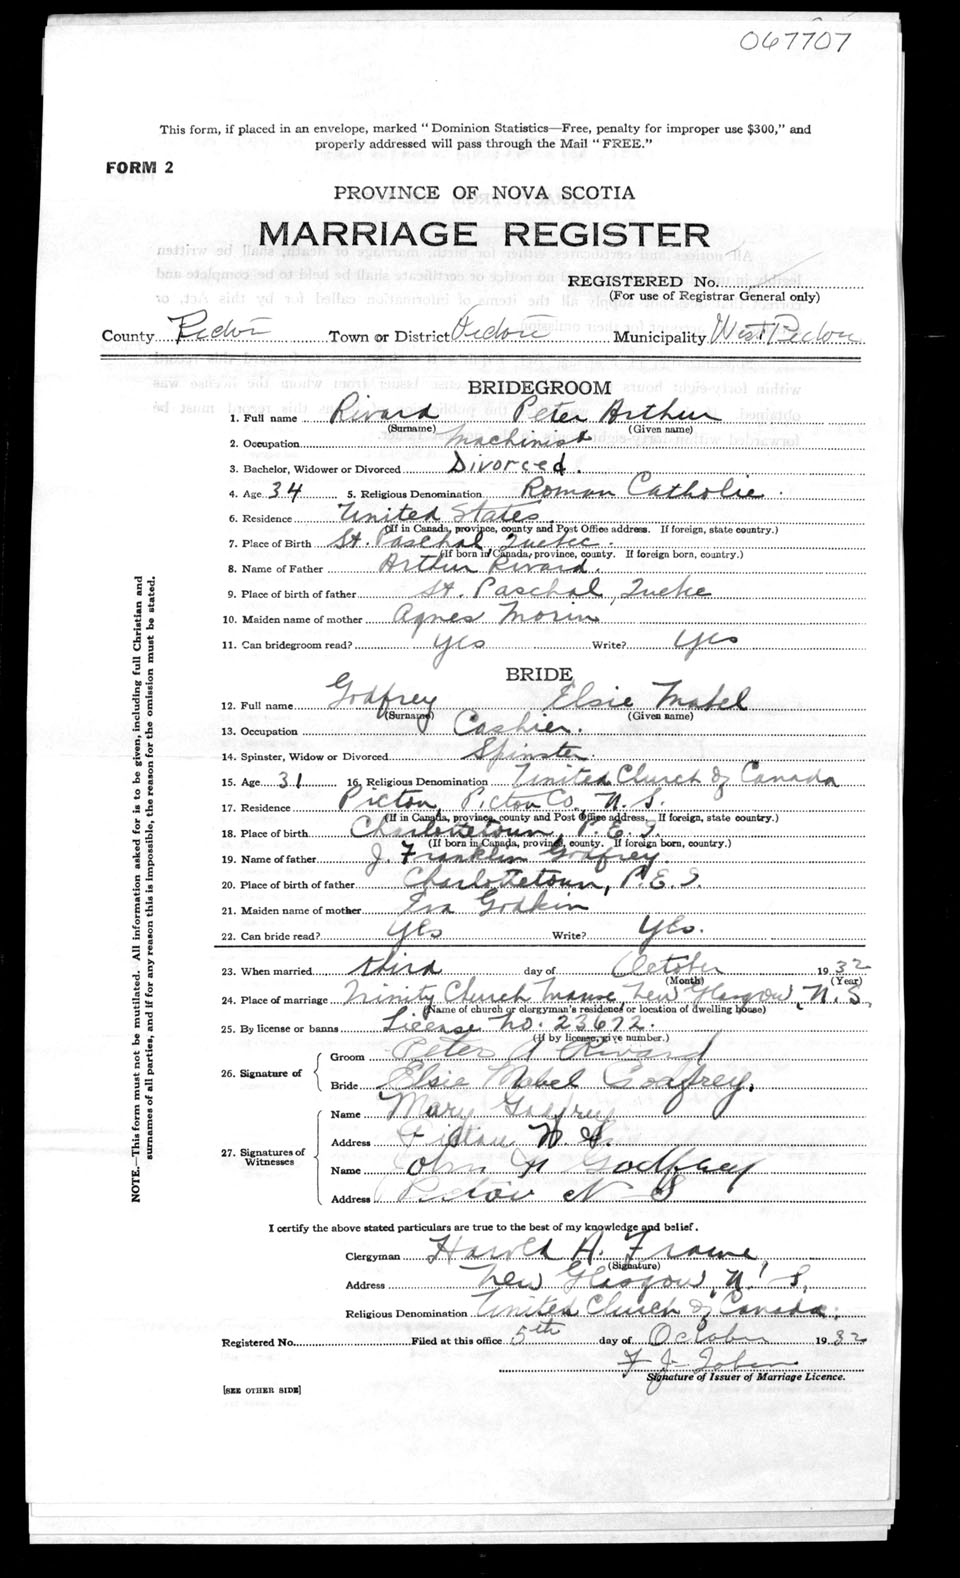 067707
This form, if placed in an envelope, marked “ Dominion Statistics—Free, penalty for improper use $300,” and
properly addressed will pass through the Mail “ FREE.”
FORM 2
PROVINCE OF NOVA SCOTIA
MARRIAGE REGISTER
REGISTERED No.
(For use of Registrar General only)
County Pictou Town or District Pictou Municipality West Pictou
BRIDEGROOM
1. Full name Rivard Peter Arthur
(Surname) (Given name)
2. Occupation Machinist
3. Bachelor, Widower or Divorced Divorced.
4. Age 34 5. Religious Denomination Roman Catholic.
6. Residence United States.
(If in Canada, province, county and Post Office address. If foreign, state country.)
7. Place of Birth St. Paschal, Quebec.
(If born in Canada, province, county. If foreign born, country.)
8. Name of Father Arthur Rivard.
9. Place of birth of father St. Paschal, Quebec
10. Maiden name of mother Agnes Morin
11. Can bridegroom read? Yes Write? Yes
BRIDE
12. Full name Godfrey Elsie Mabel
(Surname) (Given name)
13. Occupation Cashier.
14. Spinster, Widow or Divorced Spinster.
15. Age 31 16. Religious Denomination United Church of Canada
17. Residence Picton, Picton Co. N. S.
(If in Canada, province, county and Post Office address. If foreign, state country.)
18. Place of birth Charlottetown, P. E. I.
(If born in Canada, province, county. If foreign born, country.)
19. Name of father J. Franklin Godfrey.
20. Place of birth of father Charlottetown, P. E. I.
21. Maiden name of mother Eva Godkin
22. Can bride read? Yes Write? Yes.
23. When married third day of October 1932
(Month) (Year)
24. Place of marriage Trinity Church Manse, New Glasgow, N. S.
(Name of church or clergyman's residence or location of dwelling house)
25. By license or banns License No. 23672.
(If by license, give number.)
26. Signature of
Groom Peter A Rivard
Bride Elsie Mabel Godfrey.
27. Signatures of Witnesses
Name Mary Godfrey
Address Pictou N. S.
Name John Godfrey
Address Pictou N S
I certify the above stated particulars are true to the best of my knowledge and belief.
Clergyman Harold A. Frame
(Signature)
Address New Glasgow, N. S.
Religious Denomination United Church of Canada.
Registered No. Filed at this office 5th day of October 1932
Signature of Issuer of Marriage Licence.
[SEE OTHER SIDE]
NOTE.—This form must not be mutilated. All information asked for is to be given, including full Christian and
surnames of all parties, and if for any reason this is impossible, the reason for the omission must be stated.